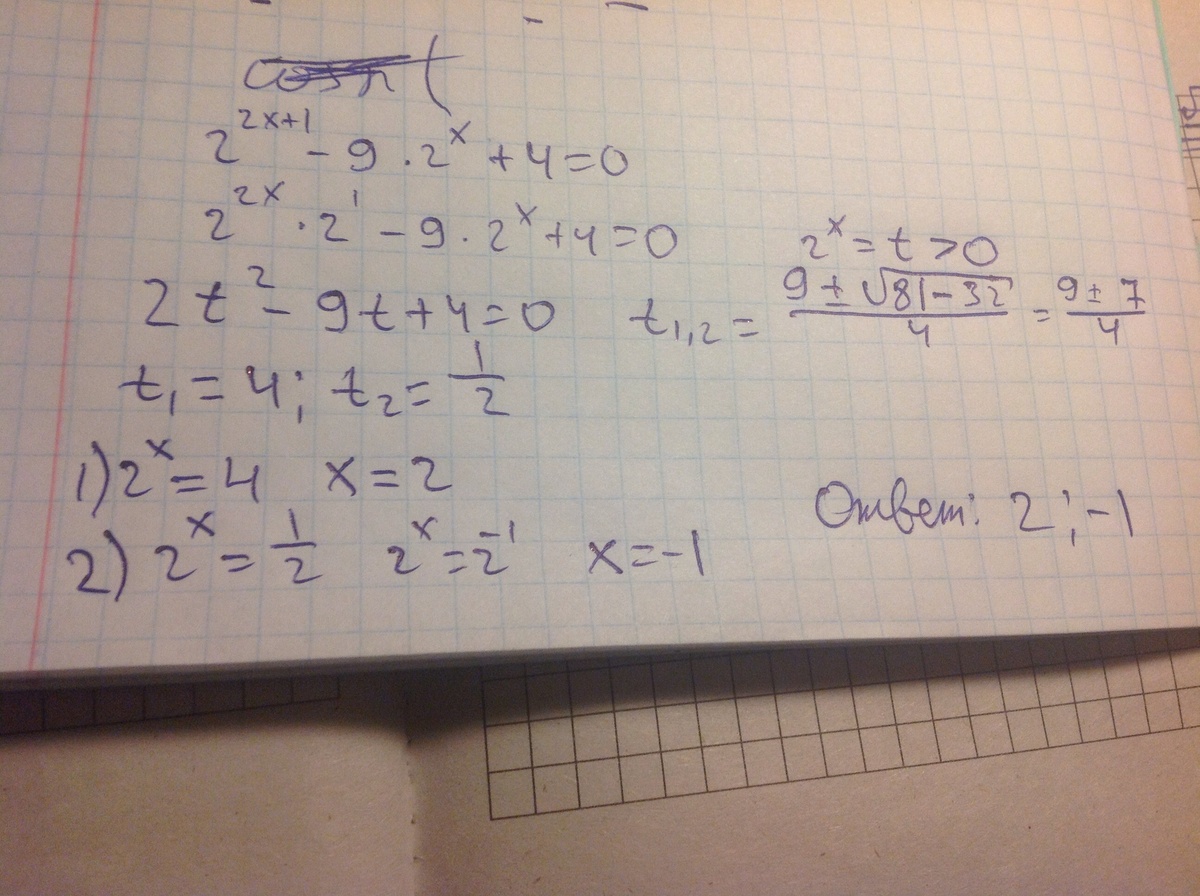 2^{2x+1} - 9 · 2^x + 4 = 0
2^{2x} · 2^1 - 9 · 2^x + 4 = 0
2^x = t > 0
2t^2 - 9t + 4 = 0
t_{1,2} = \frac{9 ± \sqrt{81 - 32}}{4} = \frac{9 ± 7}{4}
t_1 = 4; t_2 = \frac{1}{2}
1) 2^x = 4 x = 2
2) 2^x = \frac{1}{2} 2^x = 2^{-1} x = -1
Ответ: 2; -1